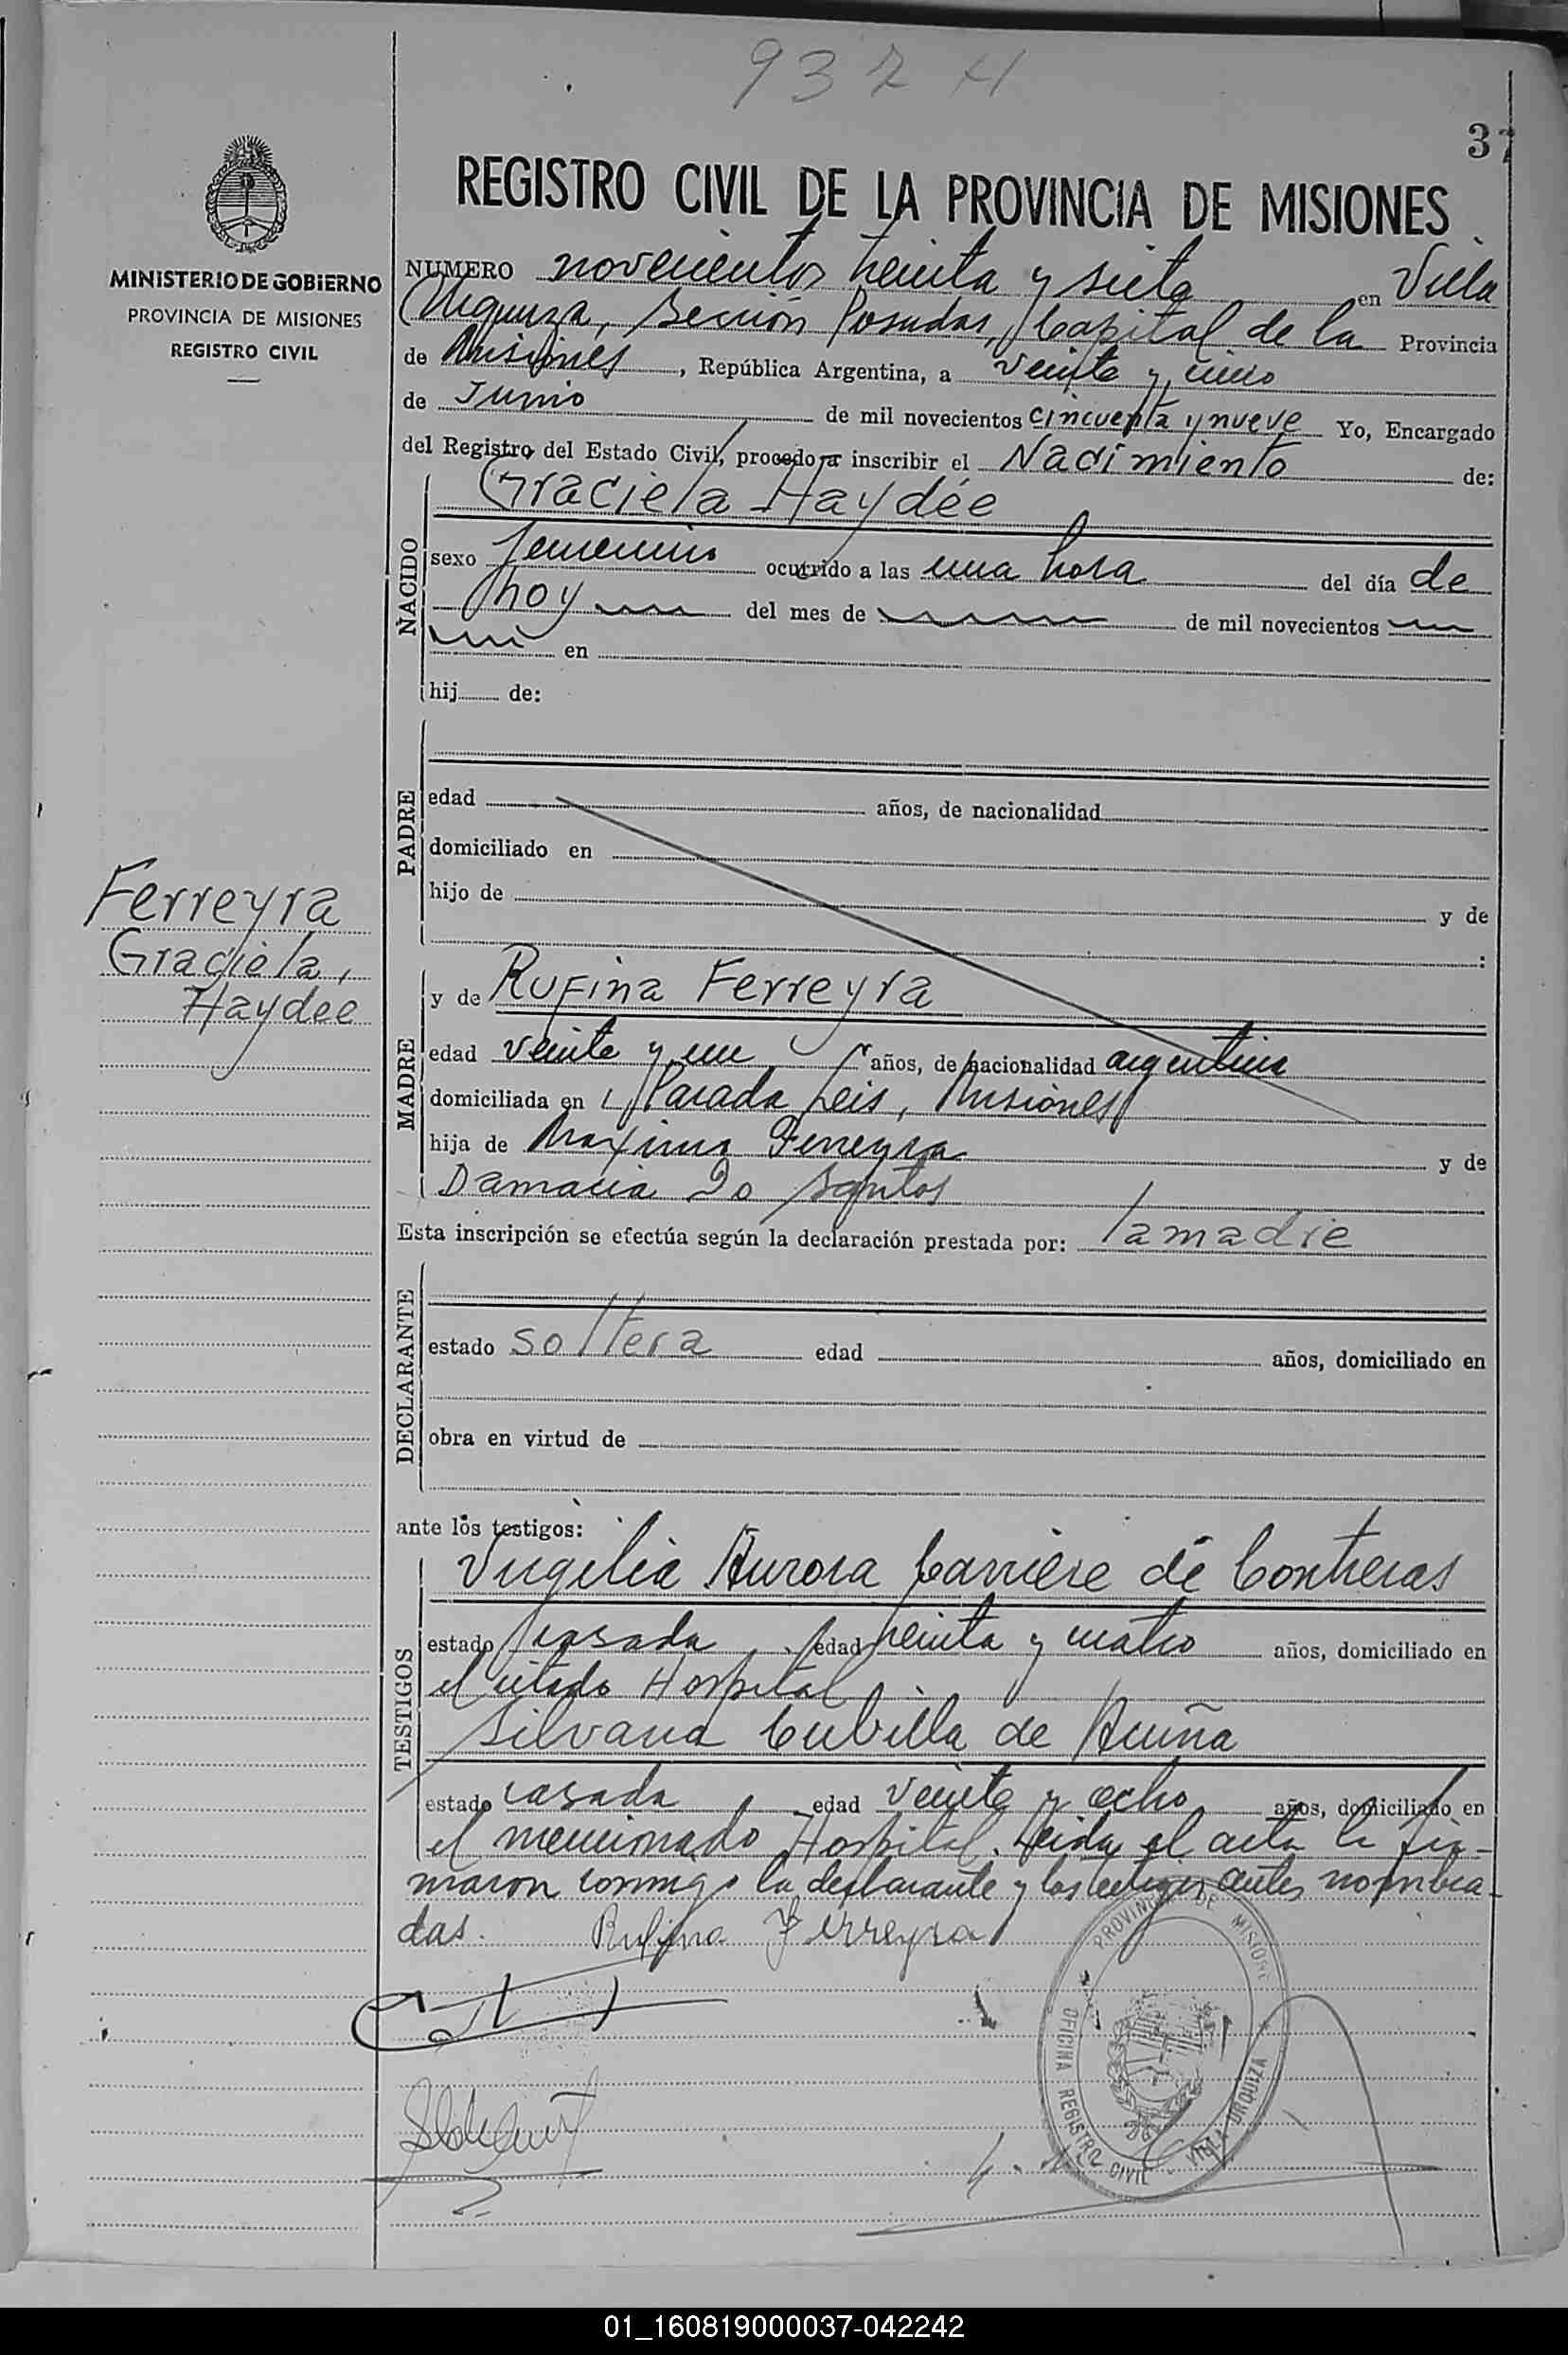 937 H
37
REGISTRO CIVIL DE LA PROVINCIA DE MISIONES
MINISTERIO DE GOBIERNO
PROVINCIA DE MISIONES
REGISTRO CIVIL
NUMERO novecientos treinta y siete en Villa
Urquiza, Sección Posadas, Capital de la Provincia
de Misiones, República Argentina, a veinte y cinco
de Junio de mil novecientos cincuenta y nueve Yo, Encargado
del Registro del Estado Civil, procedo a inscribir el Nacimiento de:
NACIDO
Graciela Haydée
sexo femenino ocurrido a las una hora del día de
hoy del mes de de mil novecientos
en
hij de:
PADRE
edad años, de nacionalidad
domiciliado en
hijo de y de
:
Ferreyra
Graciela,
Haydee
MADRE
y de Rufina Ferreyra
edad veinte y un años, de nacionalidad argentina
domiciliada en Parada Leis, Misiones
hija de Maximo Ferreyra y de
Damacia Do Santos
Esta inscripción se efectúa según la declaración prestada por: la madre
DECLARANTE
estado soltera edad años, domiciliado en
obra en virtud de
ante los testigos:
TESTIGOS
Virgilia Aurora Carriere de Contreras
estado casada edad treinta y cuatro años, domiciliado en
el citado Hospital
Silvana Cubilla de Acuña
estado casada edad veinte y ocho años, domiciliado en
el mencionado Hospital. Leida el acta la fir-
maron conmigo la declarante y las testigos antes nombra-
das. Rufina Ferreyra
PROVINCIA DE MISIONES
OFICINA REGISTRO CIVIL - VILLA URQUIZA
01_160819000037-042242